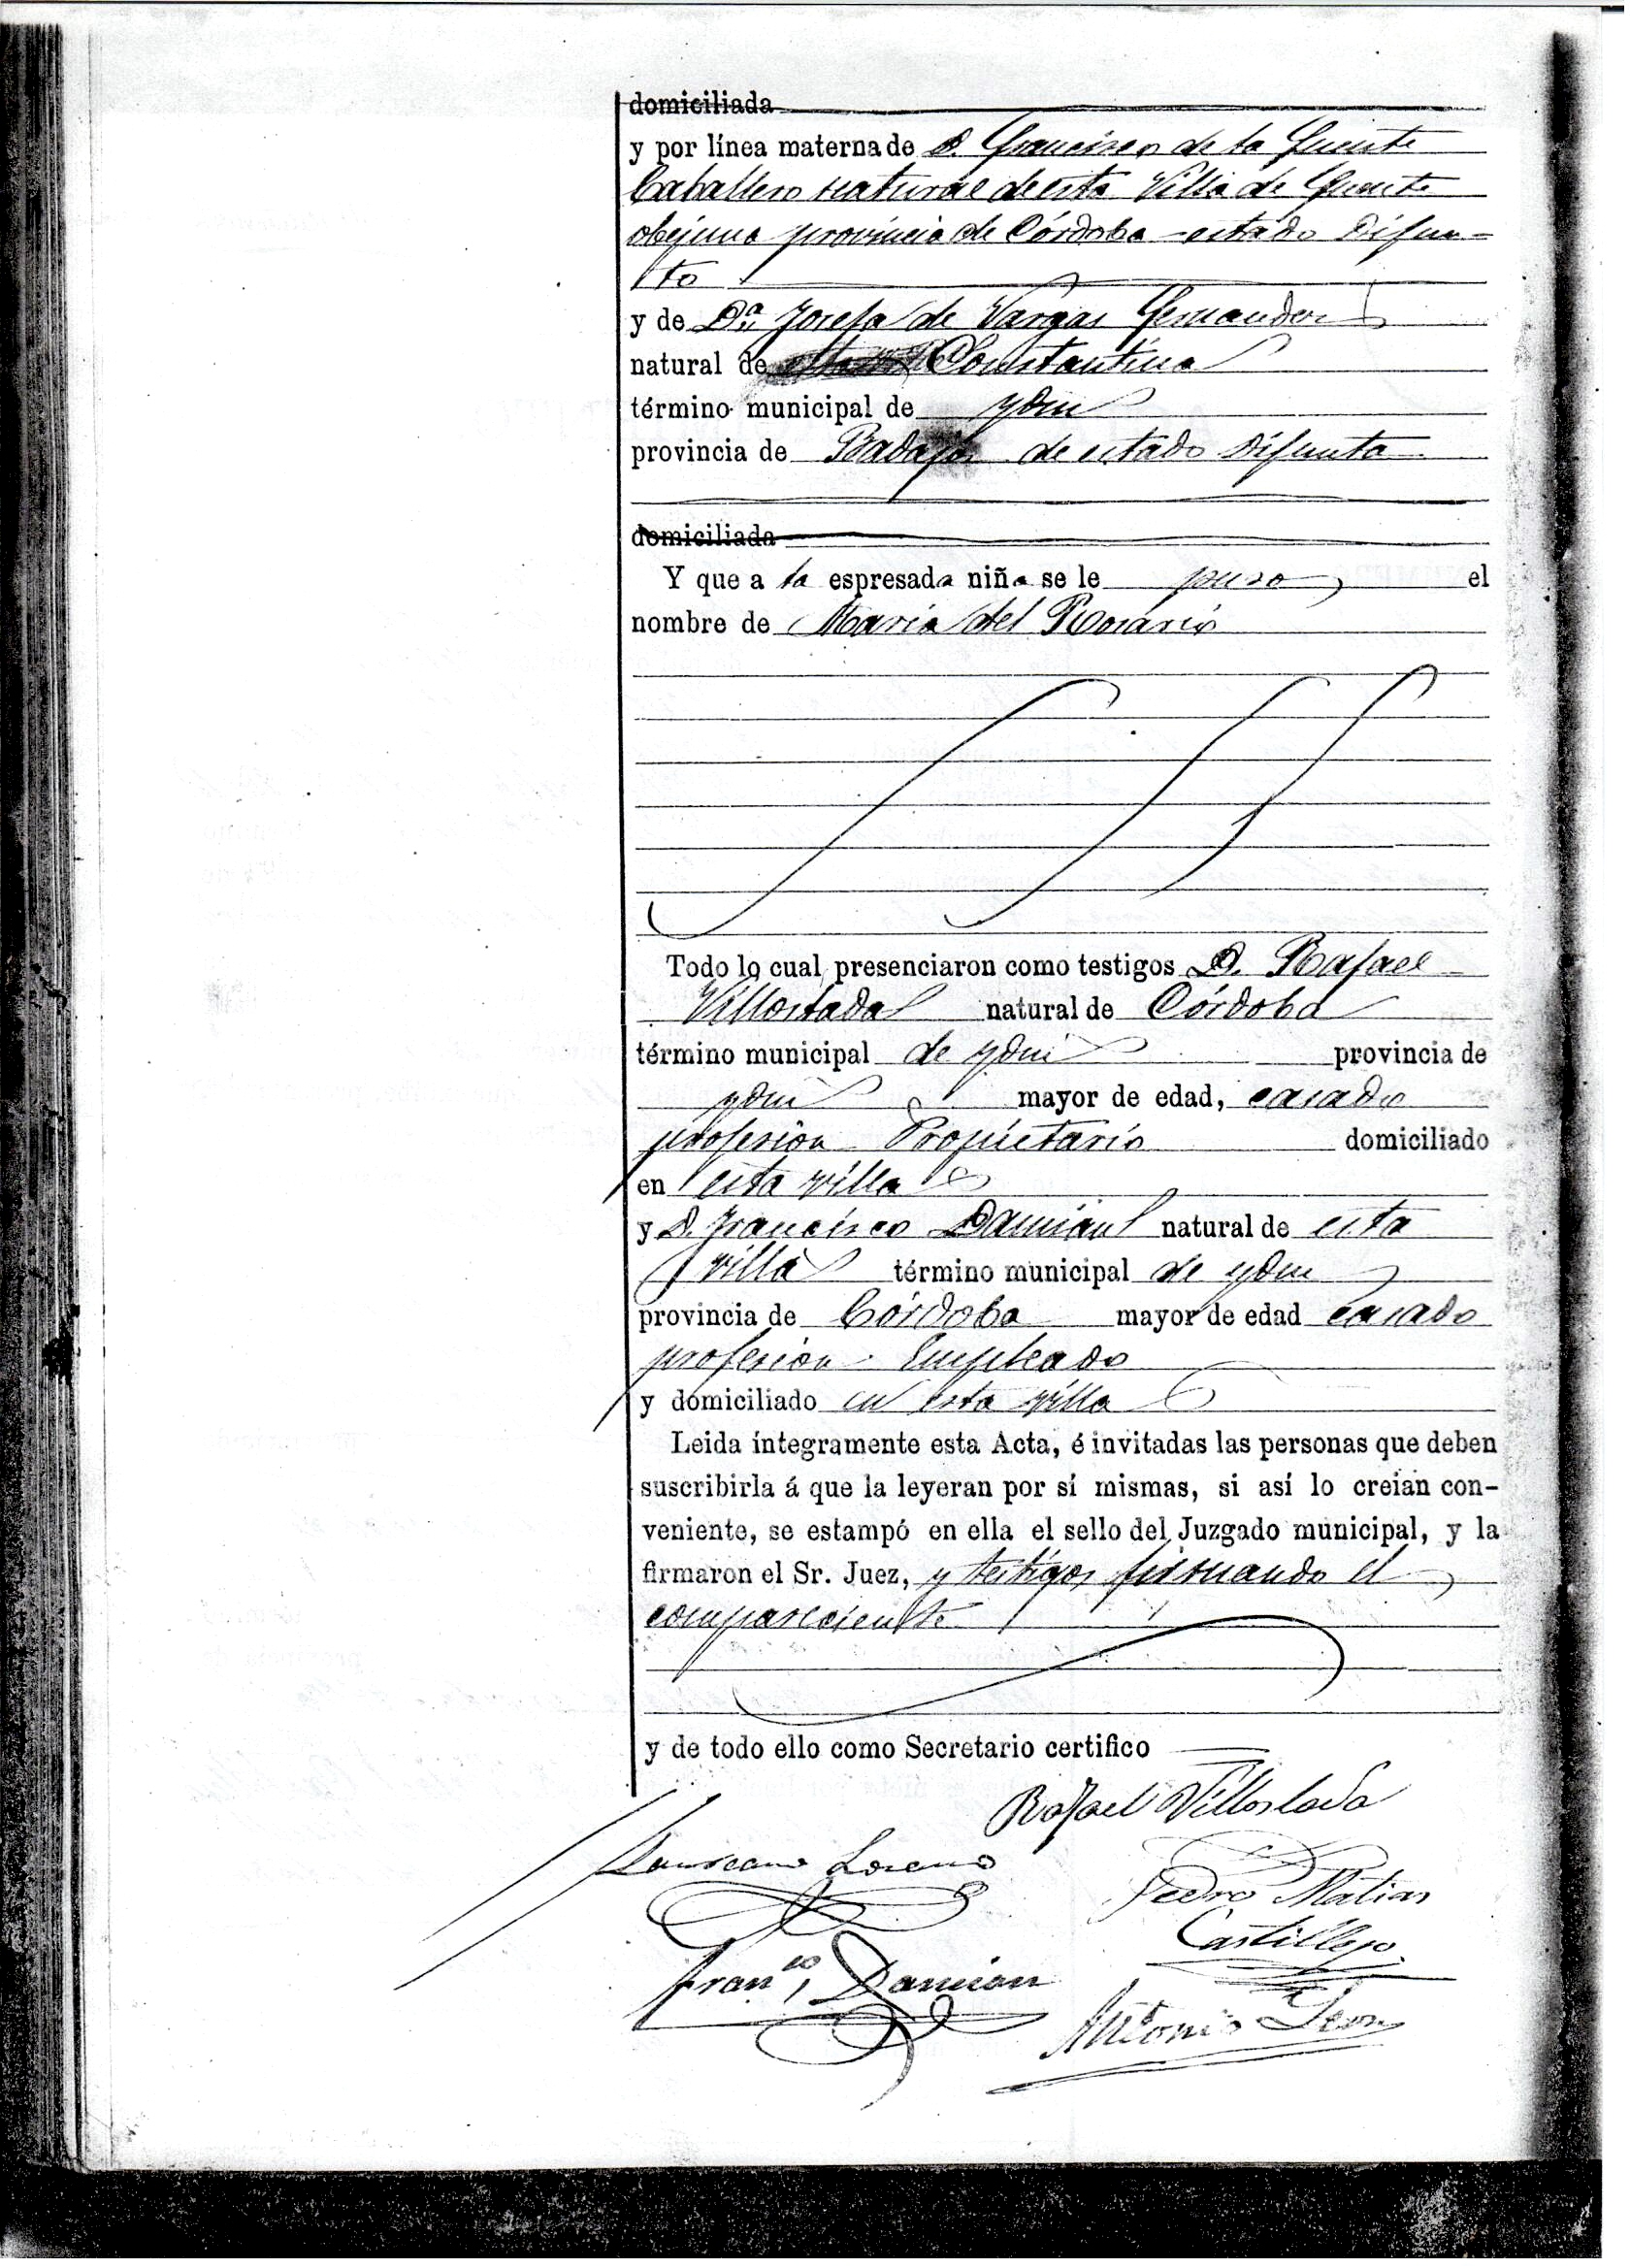 domiciliada
y por línea materna de D. Francisco de la Fuente
Caballero natural de esta Villa de Fuente
obejuna provincia de Córdoba - estado Difun-
to
y de Dª Josefa de Vargas Fernandez
natural de Constantina
término municipal de ydm
provincia de Badajoz de estado Difunta
domiciliada
Y que a la espresada niña se le puso el
nombre de Maria del Rosario
Todo lo cual presenciaron como testigos D. Rafael
Villoslada natural de Córdoba
término municipal de ydm provincia de
ydm mayor de edad, casado
profesion Propietario domiciliado
en esta villa
y D. Francisco Damian natural de esta
villa término municipal de ydm
provincia de Córdoba mayor de edad casado
profesion Empleado
y domiciliado en esta villa
Leida íntegramente esta Acta, é invitadas las personas que deben
suscribirla á que la leyeran por sí mismas, si así lo creian con-
veniente, se estampó en ella el sello del Juzgado municipal, y la
firmaron el Sr. Juez, y testigos firmando el
compareciente
y de todo ello como Secretario certifico
Rafael Villoslada
Laureano
Pedro Matias
Castillejo
Franco Damian
Antonio Leon